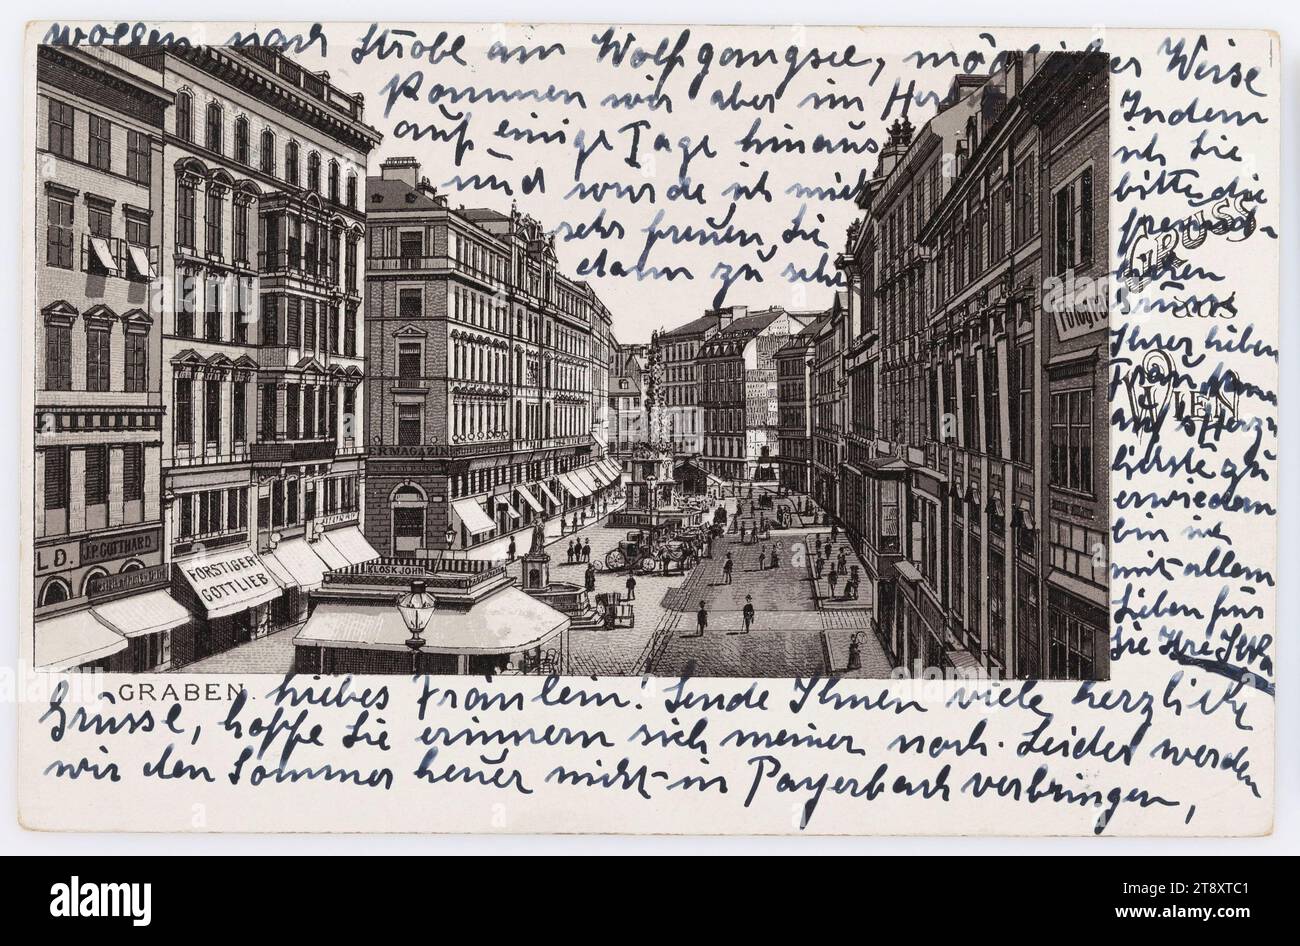 wollen nach Strobl am Wolfgangsee, möglicher Weise
kommen wir aber im Herbst
auf einige Tage hinaus
und würde ich mich
sehr freuen, Sie
dann zu sehen
Indem
ich Sie
bitte die
freund-
lichen
Grüsse
Ihrer lieben
Frau Mama
auf's Herz-
lichste zu
erwiedern
bin ich
mit allem
Lieben für
Sie Ihre
GRUSS
aus
WIEN
Fotogra
ERMAGAZIN
L D.
J.P. GOTTHARD
FÖRSTIGER
GOTTLIEB
KIOSK JOHN
GRABEN.
liebes Fräulein! Sende Ihnen viele herzliche
Grüsse, hoffe Sie erinnern sich meiner noch. Leider werden
wir den Sommer heuer nicht in Payerbach verbringen,
alamy
Image ID: 2T8XTC1
www.alamy.com